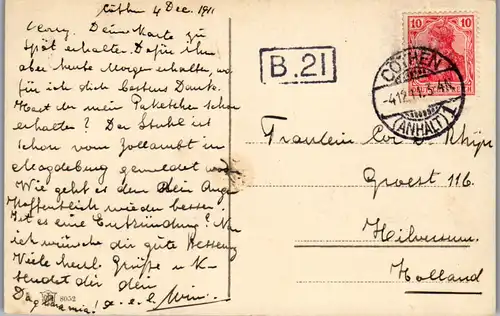 Cöthen 4 Dec. 1911
Deine Karte zu
spät erhalten. Dafür ihn
aber heute Morgen erhalten, wo
für ich dich bestens Danke.
Hast du mein Paketchen schon
erhalten? Der Stuhl ist
schon vom Zollambt in
Magdeburg gemeldet
Wie geht es den Dein Auge
Hoffentlich wieder besser.
Ist es eine Entzündung? Nu
ich wünsche dir gute Besserung
Viele herzl. Grüsse u K
sendet dir dein
Wim
8052
B.21
10 10
CÖTHEN
4.12.11.3-4N.
(ANHALT)
Fräulein Cor v Rhijn
Groest 116.
Hilversum.
Holland